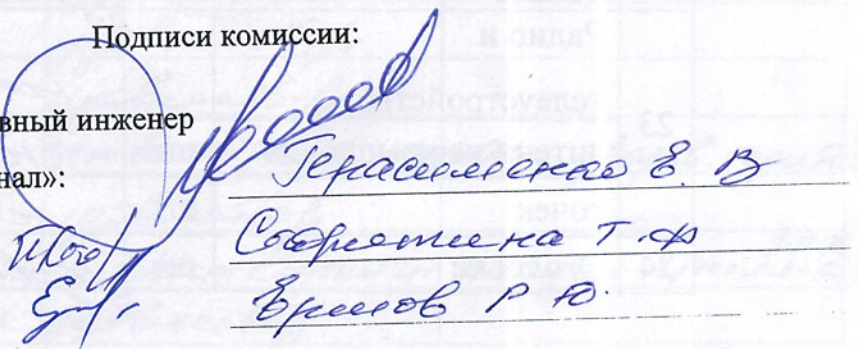 Подписи комиссии:
вный инженер
нал»:
Герасименко Е. В
Т. Ф
Ермов Р Ю.